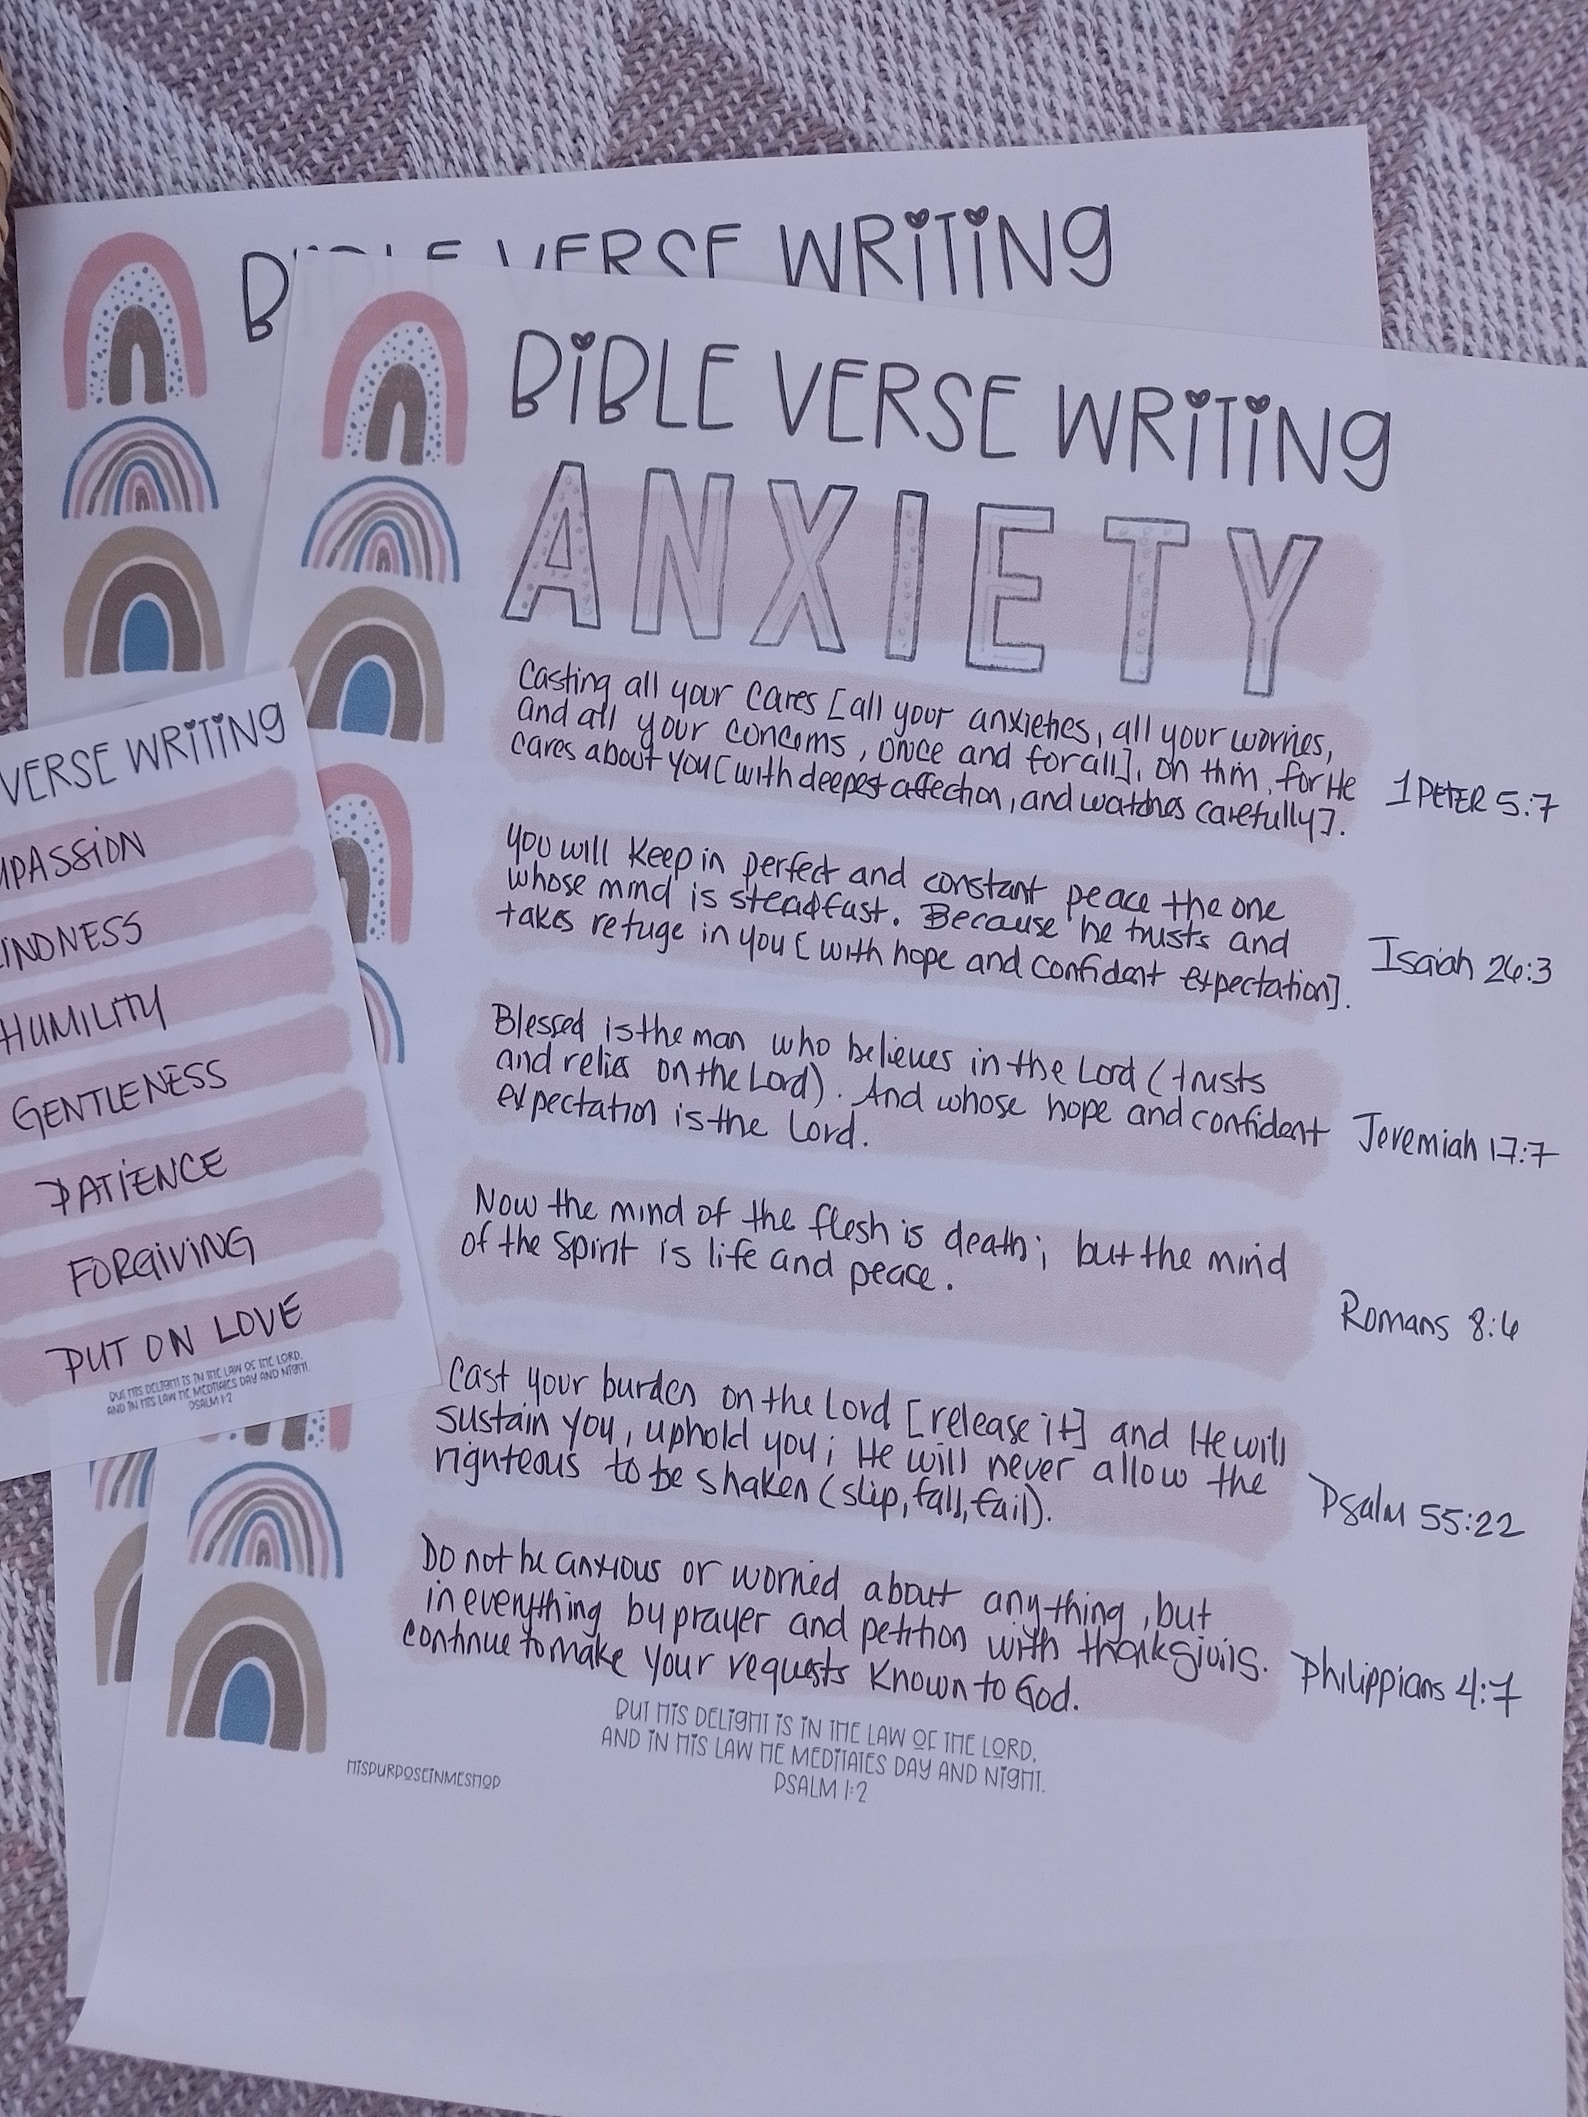 BIBLE VERSE WRITING
BIBLE VERSE WRITING
ANXIETY
Casting all your cares [all your anxieties, all your worries,
and all your concerns, once and for all], on Him, for He
cares about you [with deepest affection, and watches carefully].
1 PETER 5:7
You will keep in perfect and constant peace the one
whose mind is steadfast. Because he trusts and
takes refuge in you [with hope and confident expectation].
Isaiah 26:3
Blessed is the man who believes in the Lord (trusts
and relies on the Lord). And whose hope and confident
expectation is the Lord.
Jeremiah 17:7
Now the mind of the flesh is death; but the mind
of the spirit is life and peace.
Romans 8:6
Cast your burden on the Lord [release it] and He will
sustain you, uphold you; He will never allow the
righteous to be shaken (slip, fall, fail).
Psalm 55:22
Do not be anxious or worried about anything, but
in everything by prayer and petition with thanksgivis.
continue to make your requests known to God.
Philippians 4:7
BUT HIS DELIGHT IS IN THE LAW OF THE LORD,
AND IN HIS LAW HE MEDITATES DAY AND NIGHT.
PSALM 1:2
HISPURPOSEINMESHOP
VERSE WRITING
MPASSION
INDNESS
HUMILITY
GENTLENESS
PATIENCE
FORGIVING
PUT ON LOVE
BUT HIS DELIGHT IS IN THE LAW OF THE LORD,
AND IN HIS LAW HE MEDITATES DAY AND NIGHT.
PSALM 1:2